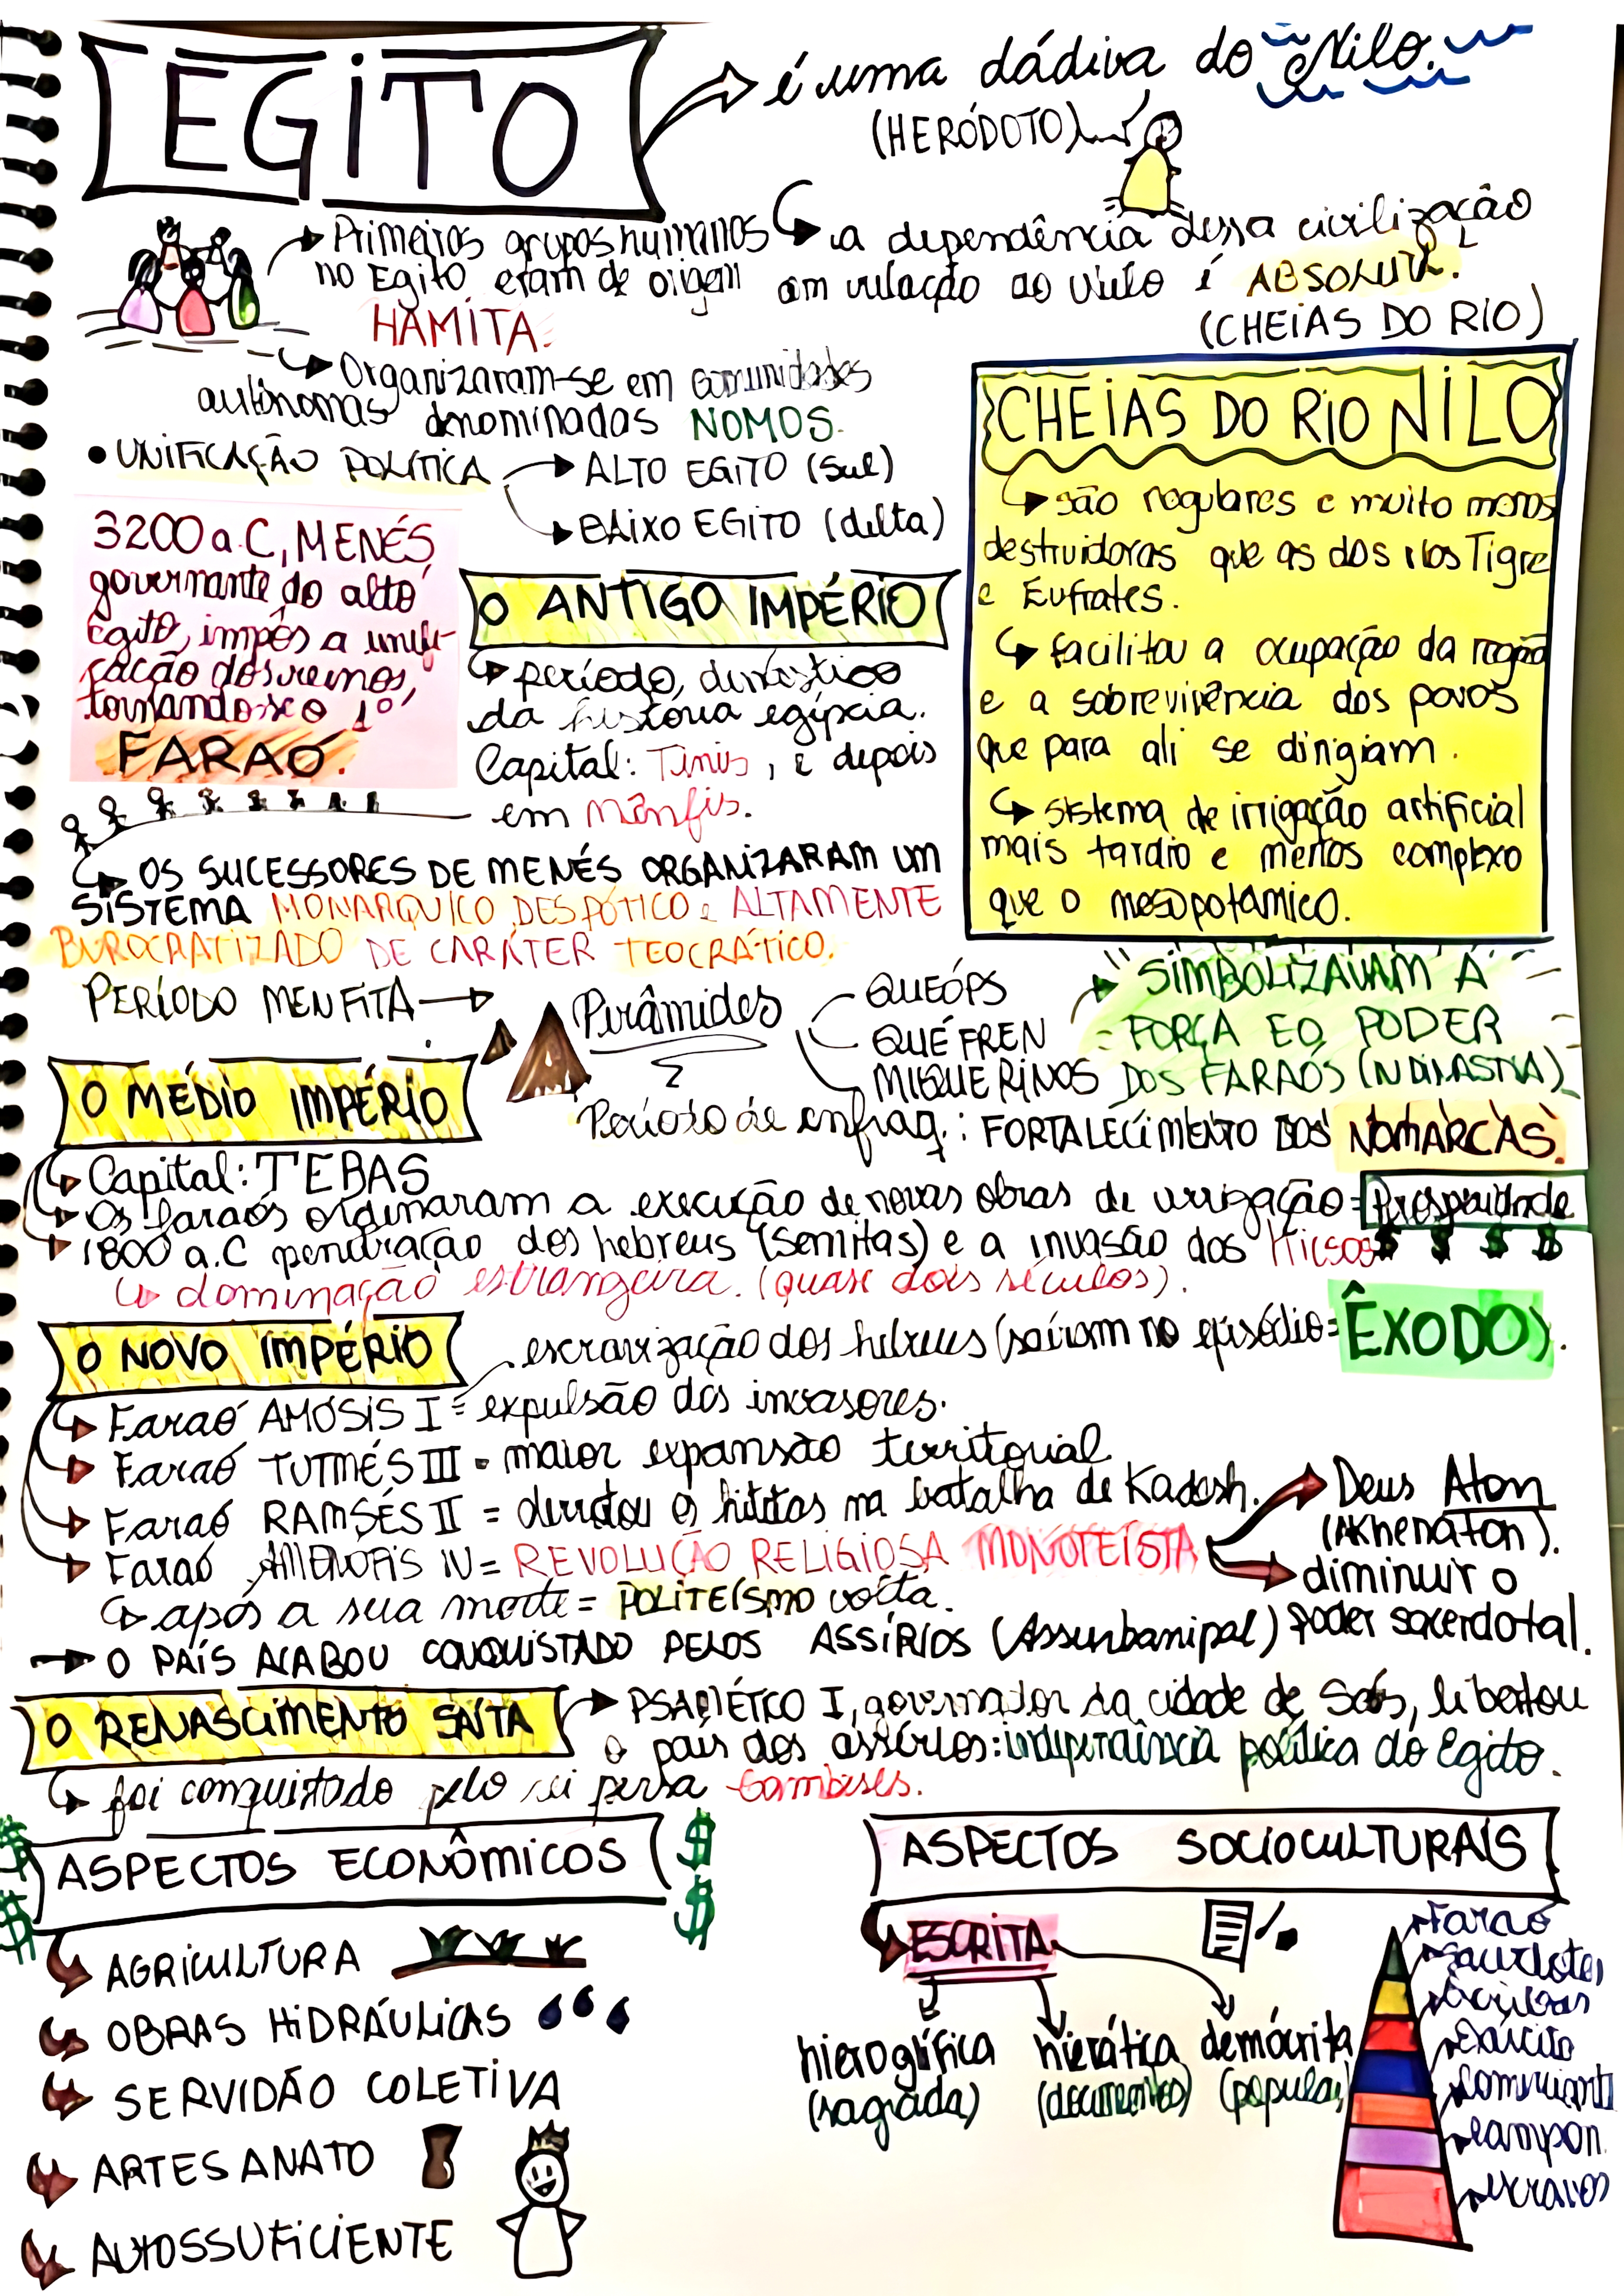 EGITO
é uma dádiva do Nilo.
(HERÓDOTO)
a dependência dessa civilização
em relação ao Nilo é ABSOLUTA.
(CHEIAS DO RIO)
Primeiros grupos humanos
no Egito eram de origem
HAMITA.
Organizaram-se em comunidades
autônomas denominadas NOMOS.
• UNIFICAÇÃO POLÍTICA
ALTO EGITO (Sul)
BAIXO EGITO (delta)
3200 a.C, MENÉS,
governante do alto
Egito, impôs a unifi-
cação dos reinos,
tornando-se o 1º
FARAÓ.
CHEIAS DO RIO NILO
são regulares e muito menos
destruidoras que as dos rios Tigre
e Eufrates.
facilitou a ocupação da região
e a sobrevivência dos povos
que para ali se dirigiam.
sistema de irrigação artificial
mais tardio e menos complexo
que o mesopotâmico.
O ANTIGO IMPÉRIO
período dinástico
da história egípcia.
Capital: Tinis, e depois
em Mênfis.
OS SUCESSORES DE MENÉS ORGANIZARAM UM
SISTEMA MONARQUICO DESPÓTICO e ALTAMENTE
BUROCRATIZADO DE CARÁTER TEOCRÁTICO.
PERÍODO MENFITA
Pirâmides
QUEÓPS
QUÉFREN
MIQUERINOS
SIMBOLIZAVAM A
FORÇA E O PODER
DOS FARAÓS (IV DINASTIA)
Período de enfraq.: FORTALECIMENTO DOS NOMARCAS.
O MÉDIO IMPÉRIO
Capital: TEBAS
Os faraós ordenaram a execução de novas obras de irrigação = Prosperidade
1800 a.C penetração dos hebreus (semitas) e a invasão dos hicsos
$ $ $ $
dominação estrangeira. (quase dois séculos).
O NOVO IMPÉRIO
escravização dos hebreus (saíram no episódio = ÊXODO).
Faraó AMÓSIS I = expulsão dos invasores.
Faraó TUTMÉS III = maior expansão territorial
Faraó RAMSÉS II = derrotou os hititas na batalha de Kadesh.
Faraó AMENÓFIS IV = REVOLUÇÃO RELIGIOSA MONOTEÍSTA
Deus Aton
(Akhenaton).
diminuir o
poder sacerdotal.
após a sua morte = POLITEÍSMO volta.
O PAÍS ACABOU CONQUISTADO PELOS ASSÍRIOS (Assurbanipal)
O RENASCIMENTO SAÍTA
PSAMÉTCO I, governador da cidade de Saís, libertou
o país dos assírios: independência política do Egito.
foi conquistado pelo rei persa Cambises.
$ $
ASPECTOS ECONÔMICOS
$ $
AGRICULTURA
OBRAS HIDRÁULICAS
SERVIDÃO COLETIVA
ARTESANATO
AUTOSSUFICIENTE
ASPECTOS SOCIOCULTURAIS
ESCRITA
hieroglífica
(sagrada)
hierática
(documentos)
demócrita
(popular)
Faraó
Sacerdotes
Escribas
Exército
Comerciant
campon.
escravos